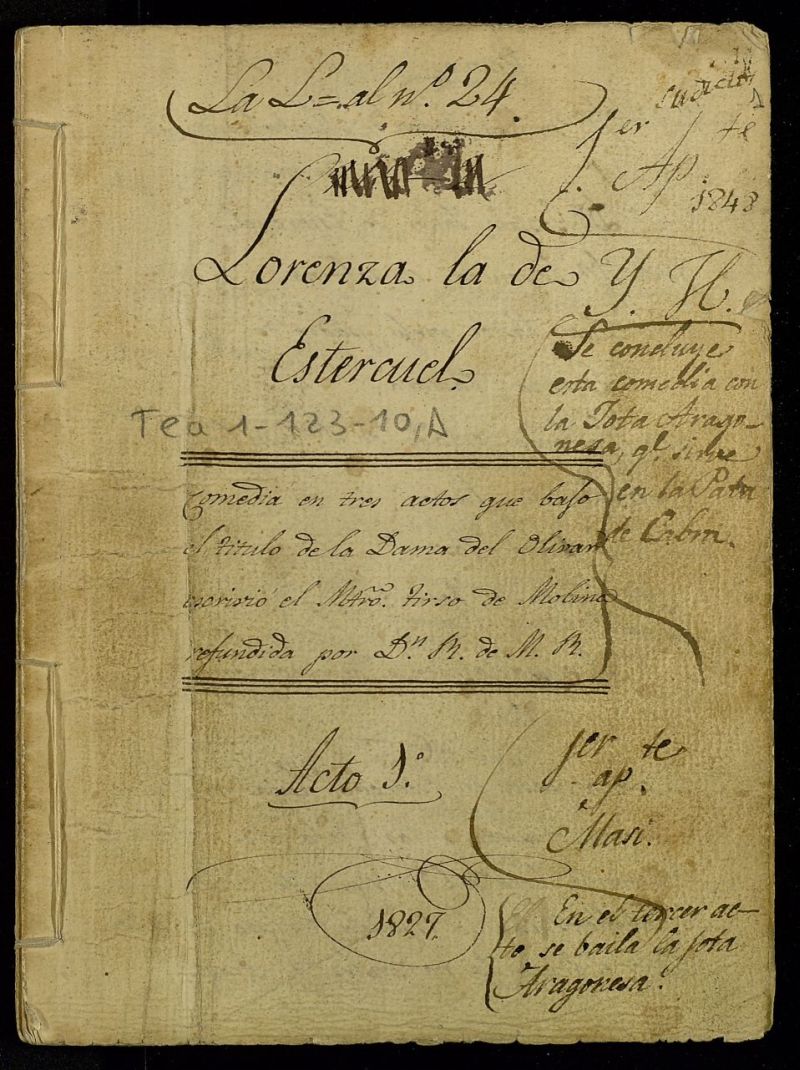 La L= al nº. 24.
1er Apte.
1848
Lorenza la de
Estercuel.
Y. H.
Se concluye
esta comedia con
la Jota Arago-
nesa, qe. sirve
en la Pata
de Cabra.
Tea 1-123-10, A
Comedia en tres actos que bajo
el titulo de la Dama del Olivar
escrivió el Mtrō. Tirso de Molina
refundida por Dn. R. de M. R.
Acto 1.º
1er apte.
Masi.
1827.
En el tercer ac-
to se baila la jota
Aragonesa.